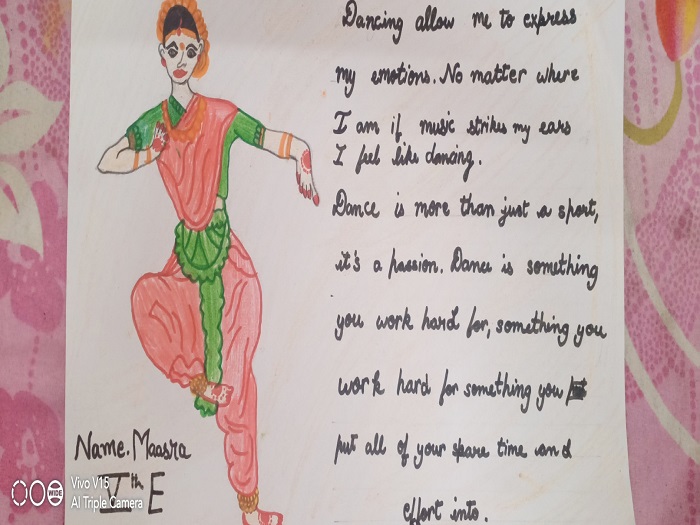 Dancing allow me to express
my emotions. No matter where
I am if music strikes my ears
I feel like dancing.
Dance is more than just a sport,
it's a passion. Dance is something
you work hard for, something you
work hard for something you
put all of your spare time and
effort into.
Name. Maasra
Vth E
Vivo V15
AI Triple Camera